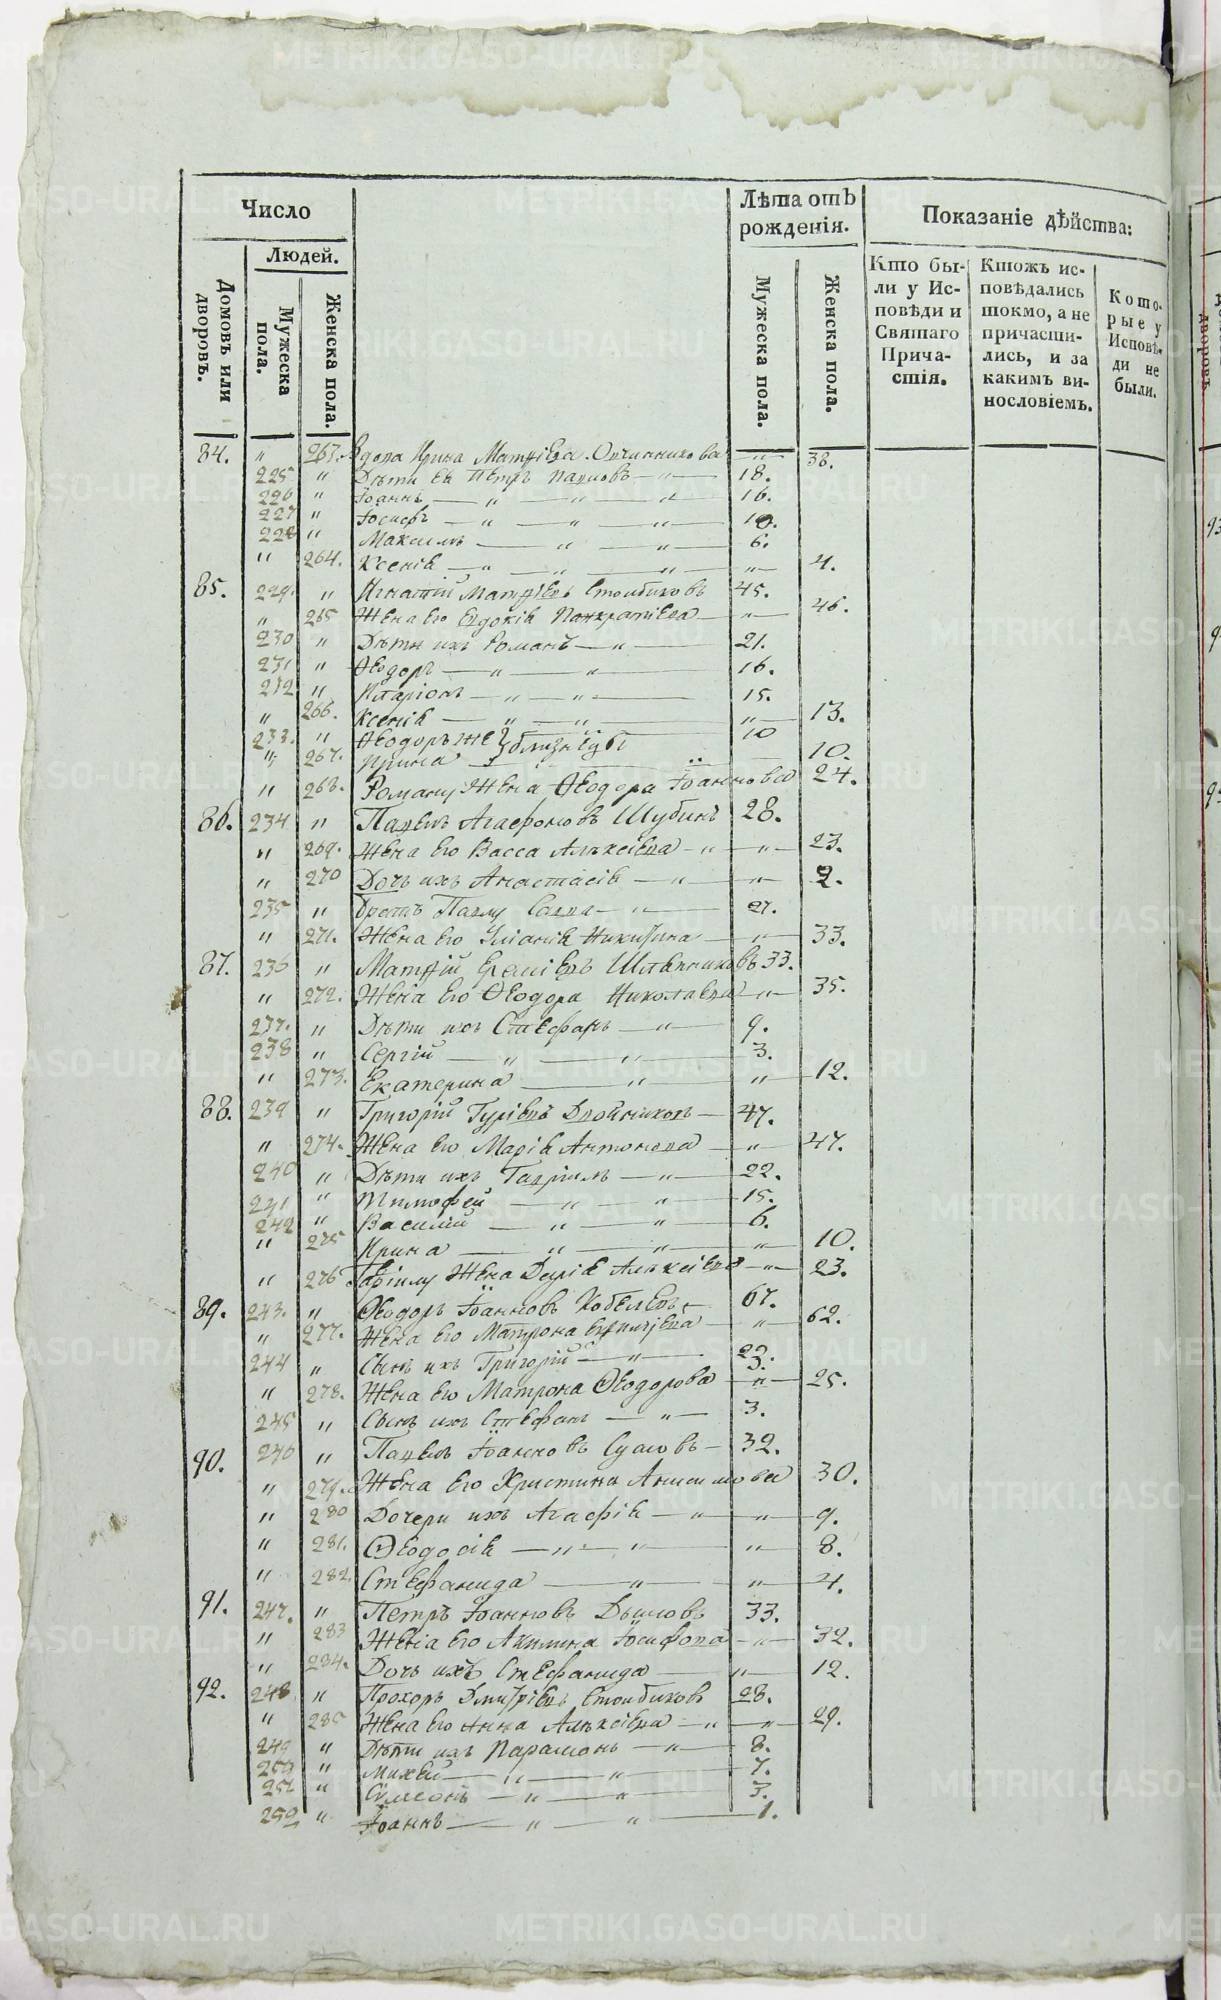 Число
Людей.
Домовъ или дворовъ.
Мужеска пола.
Женска пола.
Лѣта отъ рожденія.
Мужеска пола.
Женска пола.
Показаніе дѣйства:
Кто были у Исповѣди и Святаго Причастія.
Ктожъ исповѣдались токмо, а не причастились, и за какимъ винословіемъ.
Которые у Исповѣди не были.
84. " 263. Вдова Ирина Матѳіева Овчинникова — " — 38.
225 " Дѣти ея Петръ Павловъ — " — 18.
226 " Іоаннъ — " — " — " — 16.
227 " Іосифъ — " — " — " — 10.
228 " Максимъ — " — " — 6.
" 264. Ксенія — " — " — " — " — 4.
85. 229. " Игнатій Матѳіевъ Столбиковъ 45.
" 265 Жена его Евдокія Панкратіева — " — 46.
230 " Дѣти ихъ Романъ — " — 21.
231 " Ѳеодоръ — " — " — 16.
232 " Иларіонъ — " — " — 15.
" 266. Ксенія — " — " — " — 13.
233. " Ѳеодоръ же } близнецы 10
" 267. Ирина — " — 10.
" 268. Роману жена Ѳеодора Іоаннова 24.
86. 234 " Павелъ Агафоновъ Шубинъ 28.
" 269. Жена его Васса Алексіева — " — " — 23.
" 270 Дочь ихъ Анастасія — " — " — 2.
235 " Братъ Павлу Савва — " — 27.
" 271. Жена его Уліанія Никитина — " — 33.
87. 236 " Матѳій Шляпниковъ 33.
" 272. Жена его Ѳеодора Николаева — " — 35.
237. " Дѣти ихъ Стефанъ — " — 9.
238 " Сергій — " — " — 3.
" 273. Екатерина — " — " — 12.
88. 239 " Григорій Гуріевъ Двойников — 47.
" 274. Жена его Марія Антонова — " — 47.
240 " Дѣти ихъ Гавріилъ — " — 22.
241 " Тимофей — " — " — 15.
242 " Василій — " — " — 6.
" 275 Ирина — " — " — " — 10.
" 276 Гавріилу жена Дарія Алексіева — " — 23.
89. 243. " Ѳеодоръ Іоанновъ Кобелевъ — 67.
" 277. Жена его Матрона — " — 62.
244 " Сынъ ихъ Григорій — " — 23.
" 278. Жена его Матрона Ѳеодорова — " — 25.
245 " Сынъ ихъ Стефанъ — " — 3.
90. 246 " Павелъ Іоанновъ — 32.
" 279. Жена его Христина Анисимова 30.
" 280 Дочери ихъ Агафія — " — " — 9.
" 281. Ѳеодосія — " — " — " — 8.
" 282. Стефанида — " — " — 4.
91. 247. " Петръ Іоанновъ Дымовъ 33.
" 283 Жена его Акилина Іосифова — " — 32.
" 284. Дочь ихъ Стефанида — " — 12.
92. 248. " Прохоръ Дмитріевъ Столбиковъ 28.
" 285 Жена его Анна Алексіева — " — " — 29.
249 " Дѣти ихъ Парамонъ — " — 8.
250 " Михей — " — " — 7.
251 " Сумеонъ — " — " — 3.
252 " Іоаннъ — " — " — 1.
METRIKI.GASO-URAL.RU